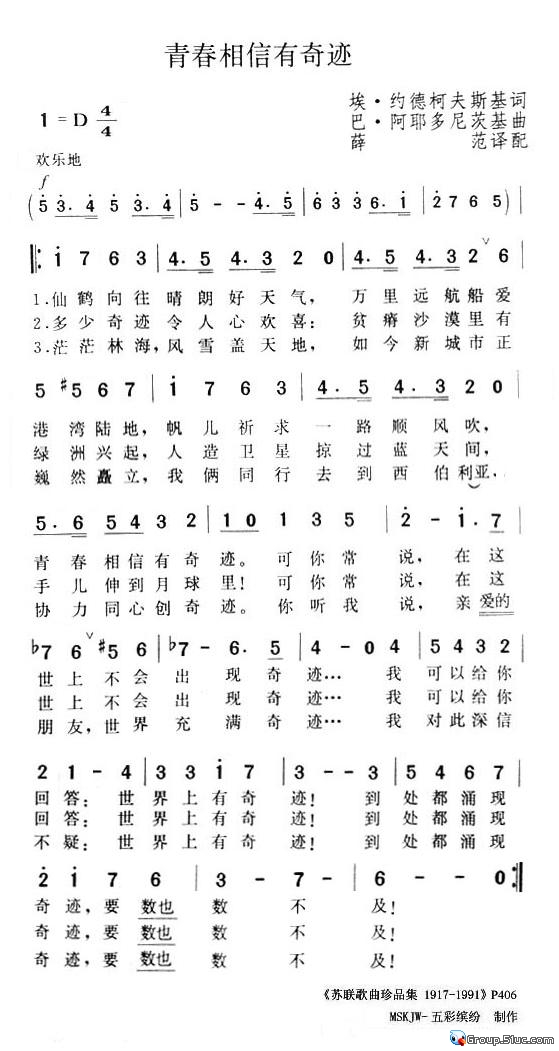 青春相信有奇迹
1=D 4/4
埃·约德柯夫斯基词
巴·阿耶多尼茨基曲
薛 范译配
欢乐地
f
(5 3.4 5 3.4 | 5 - - 4.5 | 6 3 3 6.1 | 2 7 6 5)
1 7 6 3 | 4.5 4.3 2 0 | 4.5 4.3 2 6
1.仙鹤向往晴朗好天气，万里远航船爱
2.多少奇迹令人心欢喜：贫瘠沙漠里有
3.茫茫林海，风雪盖天地，如今新城市正
5 #5 6 7 | 1 7 6 3 | 4.5 4.3 2 0
港湾陆地，帆儿祈求一路顺风吹，
绿洲兴起，人造卫星掠过蓝天间，
巍然矗立，我俩同行去到西伯利亚，
5.6 5 4 3 2 | 1 0 1 3 5 | 2 - 1.7
青春相信有奇迹。可你常说，在这
手儿伸到月球里！可你常说，在这
协力同心创奇迹。你听我说，亲爱的
b7 6 #5 6 | b7 - 6.5 | 4 - 0 4 | 5 4 3 2
世上不会出现奇迹…我可以给你
世上不会出现奇迹…我可以给你
朋友，世界充满奇迹…我对此深信
2 1 - 4 | 3 3 1 7 | 3 - - 3 | 5 4 6 7
回答：世界上有奇迹！到处都涌现
回答：世界上有奇迹！到处都涌现
不疑：世界上有奇迹！到处都涌现
2 1 7 6 | 3 - 7 - | 6 - - 0
奇迹，要数也数不及！
奇迹，要数也数不及！
奇迹，要数也数不及！
《苏联歌曲珍品集 1917-1991》P406
MSKJW-五彩缤纷 制作
Group.51uc.com